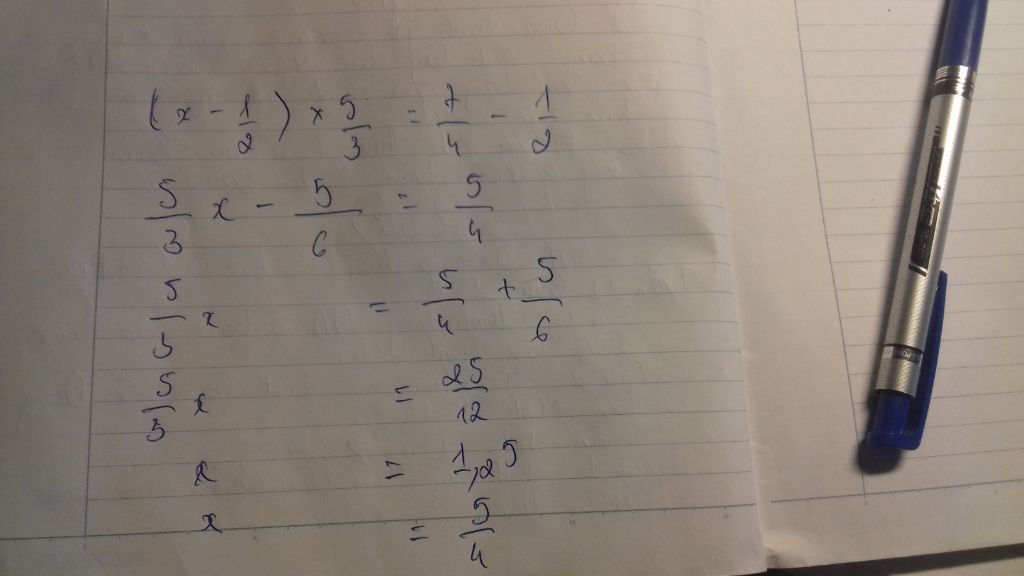 (x - 1/2) × 5/3 = 7/4 - 1/2
5/3 x - 5/6 = 5/4
5/3 x = 5/4 + 5/6
5/3 x = 25/12
x = 1,25
x = 5/4